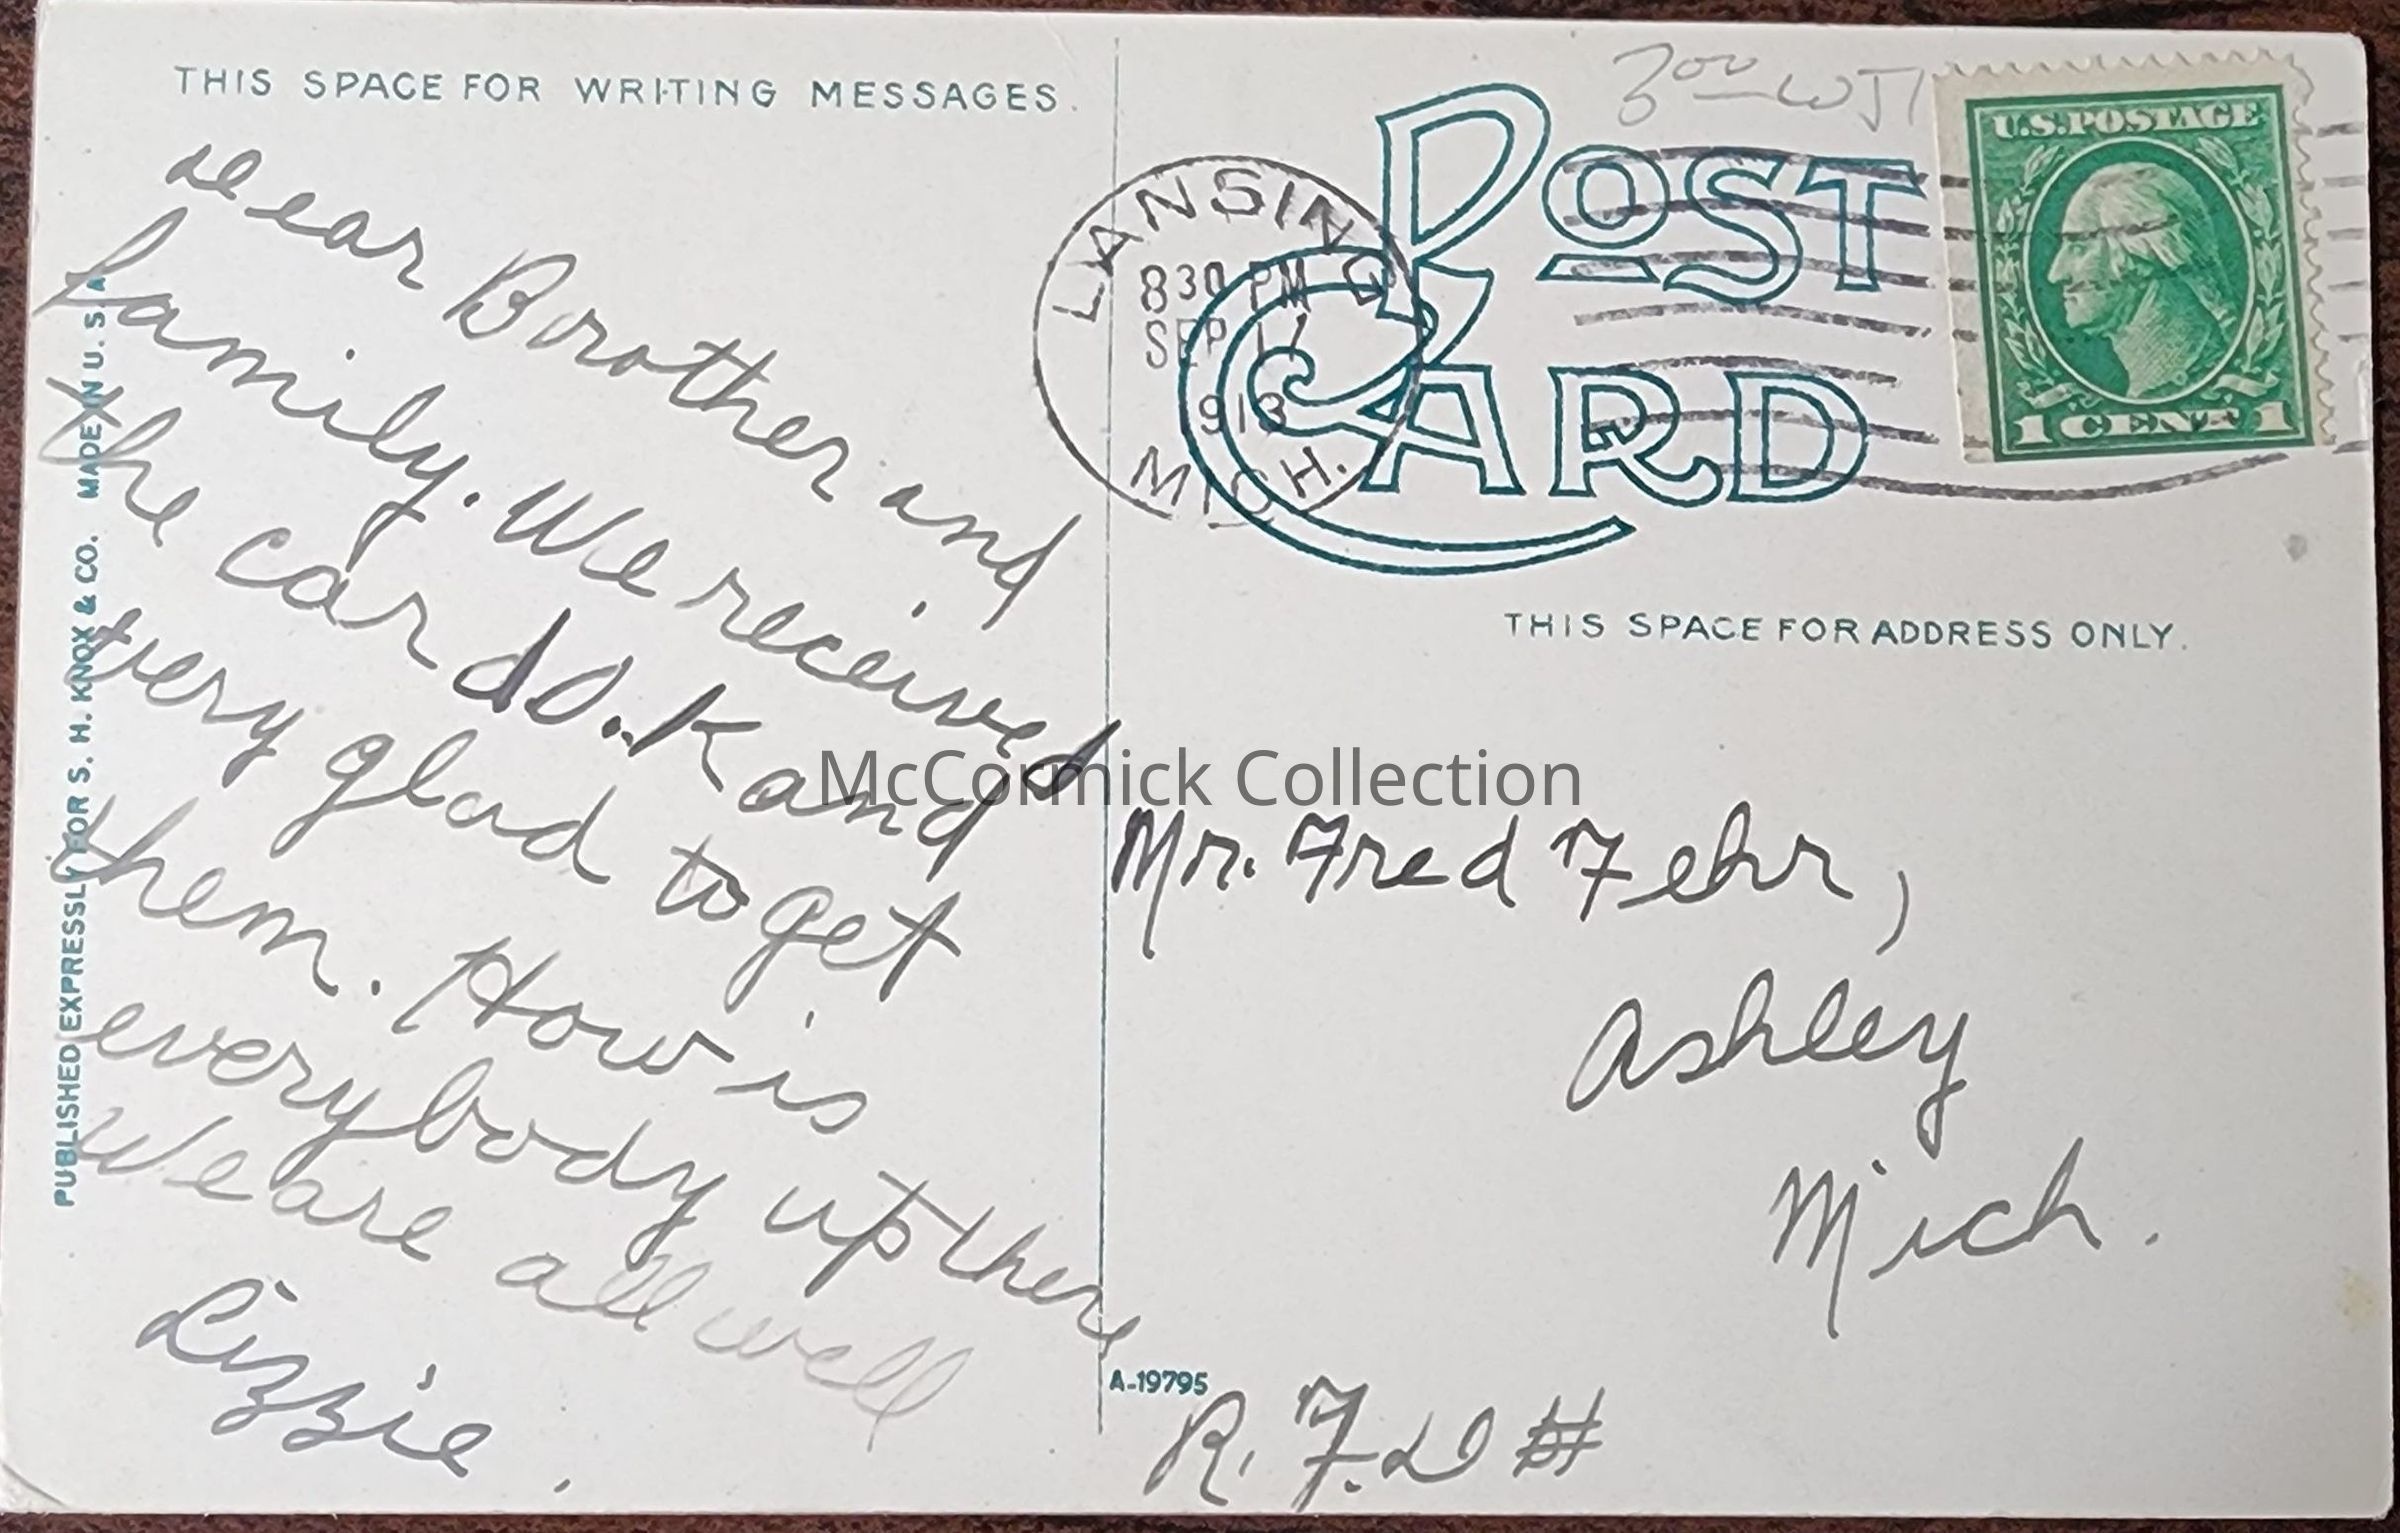 THIS SPACE FOR WRITING MESSAGES.
Dear Brother and
family. We received
the card O.K and
very glad to get
them. How is
everybody up there
We are all well
Lizzie.
PUBLISHED EXPRESSLY FOR S. H. KNOX & CO. MADE IN U. S. A
300
POST CARD
LANSING
830 PM
SEP 17
1913
MICH.
U.S. POSTAGE
1 CENT 1
THIS SPACE FOR ADDRESS ONLY.
McCormick Collection
Mr. Fred Fehr,
Ashley
Mich.
A-19795
R. F. D #